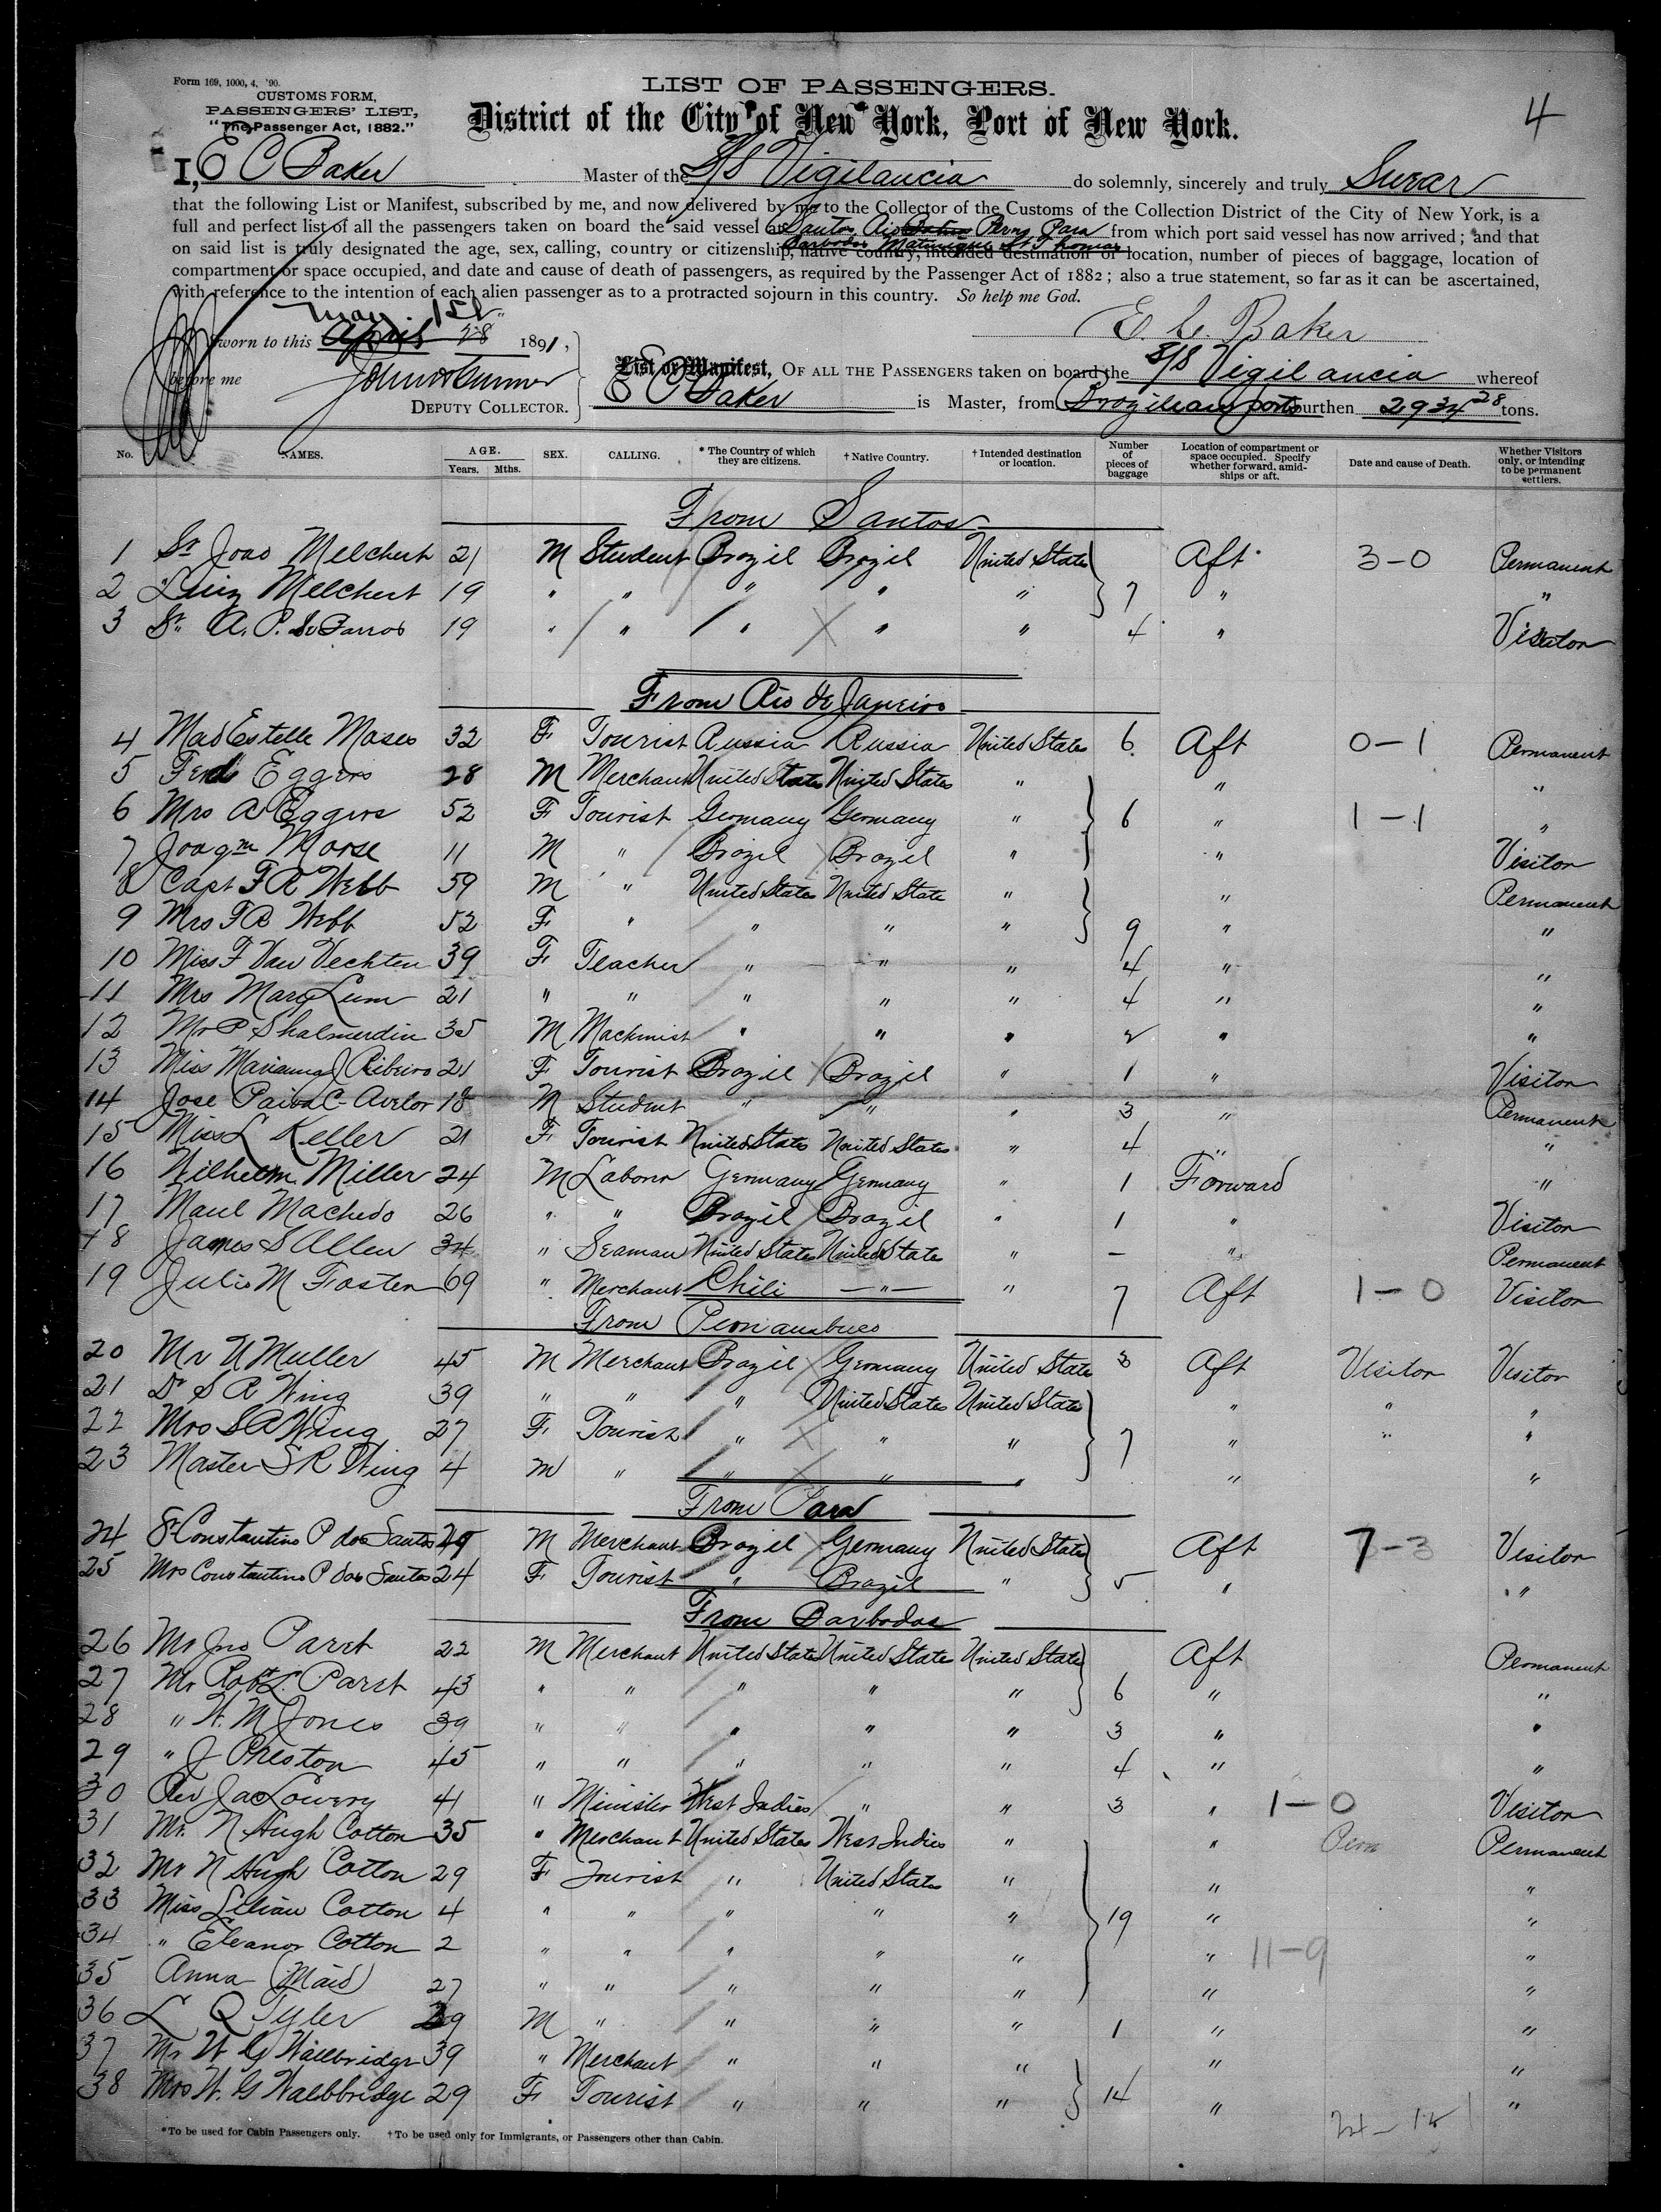 Form 169, 1000, 4, '90.
CUSTOMS FORM,
PASSENGERS' LIST,
"The Passenger Act, 1882."
LIST OF PASSENGERS.
District of the City of New York, Port of New York.
4
I, E C Baker Master of the S/S Vigilancia do solemnly, sincerely and truly Swear
that the following List or Manifest, subscribed by me, and now delivered by me to the Collector of the Customs of the Collection District of the City of New York, is a
full and perfect list of all the passengers taken on board the said vessel at Santos, Rio Bahia Pern, Para from which port said vessel has now arrived; and that
Barbados Matinique St Thomas
on said list is truly designated the age, sex, calling, country or citizenship, native country, intended destination or location, number of pieces of baggage, location of
compartment or space occupied, and date and cause of death of passengers, as required by the Passenger Act of 1882; also a true statement, so far as it can be ascertained,
with reference to the intention of each alien passenger as to a protracted sojourn in this country. So help me God.
May 1st
E. C. Baker
Sworn to this April 28 1891,
before me
DEPUTY COLLECTOR.
List or Manifest, OF ALL THE PASSENGERS taken on board the S/S Vigilancia whereof
E C Baker is Master, from Brazilian ports burthen 2934 28 tons.
No. NAMES. AGE. Years. Mths. SEX. CALLING. * The Country of which they are citizens. † Native Country. † Intended destination or location. Number of pieces of baggage Location of compartment or space occupied. Specify whether forward, amidships or aft. Date and cause of Death. Whether Visitors only, or intending to be permanent settlers.
From Santos
1 Sr Joao Melchert 21 M Student Brazil Brazil United States Aft 3-0 Permanent
2 Luiz Melchert 19 " " " " " 7 " "
3 Sr A. P. De Barros 19 " " " " " 4 " Visitor
From Rio de Janeiro
4 Mad Estelle Moses 32 F Tourist Russia Russia United States 6 Aft 0-1 Permanent
5 Ferd Eggers 28 M Merchant United States United States " " "
6 Mrs A Eggers 52 F Tourist Germany Germany " 6 " 1-1 "
7 Joaqm Morse 11 M " Brazil Brazil " " Visitor
8 Capt F R Webb 59 M " United States United State " " Permanent
9 Mrs F R Webb 52 F " " " " 9 " "
10 Miss F Van Vechten 39 F Teacher " " " 4 " "
11 Mrs Mary Lum 21 " " " " " 4 " "
12 Mr P Shalmerdin 35 M Machinist " " " 2 " "
13 Miss Marianna J Ribeiro 21 F Tourist Brazil Brazil " 1 " Visitor
14 Jose Paiva C- 18 M Student " " " 3 " Permanent
15 Miss L Keller 21 F Tourist United States United States " 4 " "
16 Wilhelm Miller 24 M Laborer Germany Germany " 1 Forward "
17 Maul Machedo 26 " " Brazil Brazil " 1 " Visitor
18 James S Allen 34 " Seaman United States United State " - " Permanent
19 Julio M Foster 69 " Merchant Chili " " 7 Aft 1-0 Visitor
From Pernambuco
20 Mr U Muller 45 M Merchant Brazil Germany United State 3 Aft Visitor Visitor
21 Dr S R Wing 39 " " " United States United State " " "
22 Mrs S A Wing 27 F Tourist " " " 7 " " "
23 Master S R Wing 4 M " " " " " "
From Para
24 Sr Constantino P dos Santos 29 M Merchant Brazil Germany United State Aft 7-3 Visitor
25 Mrs Constantino P dos Santos 24 F Tourist " Brazil " 5 " "
From Barbados
26 Mr Jno Paret 22 M Merchant United State United State United State Aft Permanent
27 Mr Robt L. Paret 43 " " " " " 6 " "
28 " W. M Jones 39 " " " " " 3 " "
29 " J Preston 45 " " " " " 4 " "
30 Rev Jao Lowery 41 " Minister West Indies " " 3 " 1-0 Visitor
31 Mr. N Hugh Cotton 35 " Merchant United States West Indies " " Perm Permanent
32 Mr N Hugh Cotton 29 F Tourist " United States " " "
33 Miss Lilian Cotton 4 " " " " " 19 " "
34 " Eleanor Cotton 2 " " " " " " 11-9 "
35 Anna (Maid) 27 " " " " " " "
36 L Q Tyler 39 M " " " " 1 " "
37 Mr W G Wallbridge 39 " Merchant " " " " "
38 Mrs W. G Wallbridge 29 F Tourist " " " 14 " "
*To be used for Cabin Passengers only. †To be used only for Immigrants, or Passengers other than Cabin.